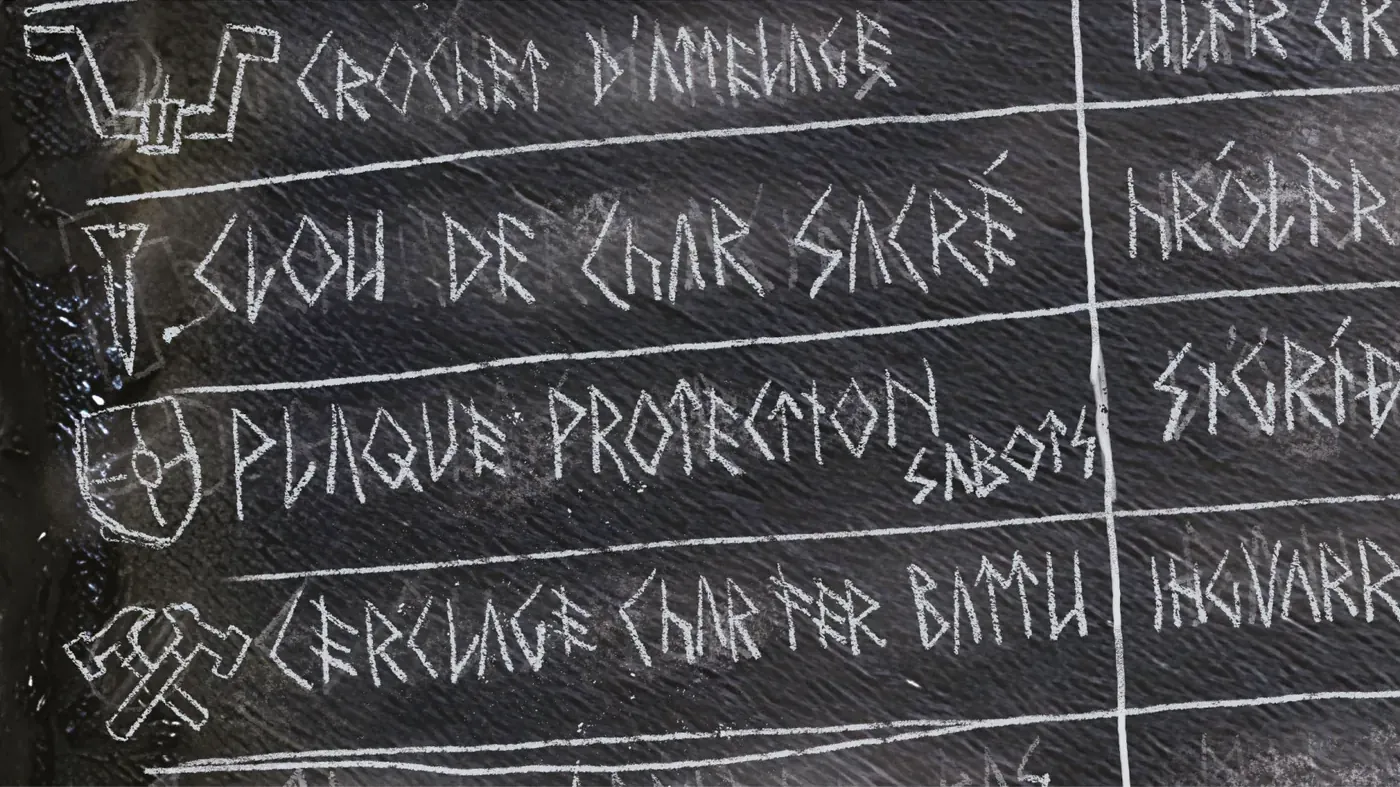 CROCHET D'ATTELAGE ULFR GR
CLOU DE CHAR SACRÉ HRÓLFR
PLAQUE PROTECTION SABOTS SIGRÍÐ
CERCLAGE CHAR FER BATTU INGVARR